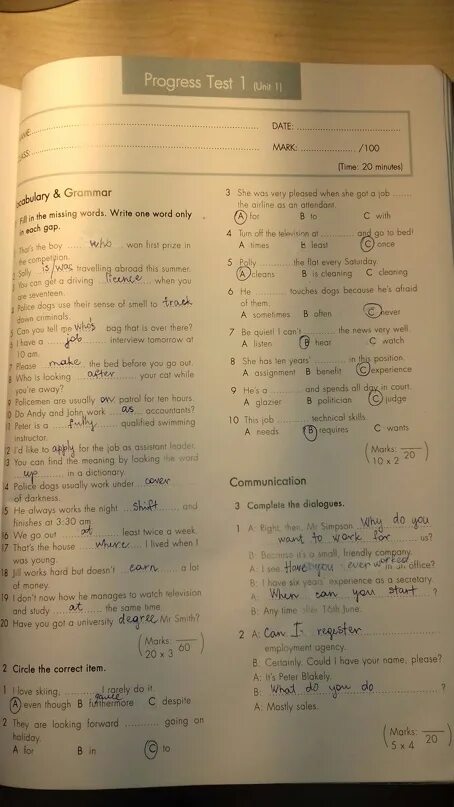 Progress Test 1 (Unit 1)
NAME:
DATE:
CLASS:
MARK: /100
(Time: 20 minutes)
Vocabulary & Grammar
Fill in the missing words. Write one word only
in each gap.
That's the boy who won first prize in
the competition.
2 Sally is/was travelling abroad this summer.
3 You can get a driving licence when you
are seventeen.
4 Police dogs use their sense of smell to track
down criminals.
5 Can you tell me who's bag that is over there?
6 I have a job interview tomorrow at
10 am.
7 Please make the bed before you go out.
8 Who is looking after your cat while
you're away?
9 Policemen are usually on patrol for ten hours.
10 Do Andy and John work as accountants?
11 Peter is a fully qualified swimming
instructor.
12 I'd like to apply for the job as assistant leader.
13 You can find the meaning by looking the word
up in a dictionary.
14 Police dogs usually work under cover
of darkness.
15 He always works the night shift and
finishes at 3:30 am.
16 We go out at least twice a week.
17 That's the house where I lived when I
was young.
18 Jill works hard but doesn't earn a lot
of money.
19 I don't now how he manages to watch television
and study at the same time.
20 Have you got a university degree Mr Smith?
(Marks: 20 x 3 60)
2 Circle the correct item.
1 I love skiing, I rarely do it.
A even though B furthermore C despite
2 They are looking forward going on
holiday.
A for B in C to
3 She was very pleased when she got a job
the airline as an attendant.
A for B to C with
4 Turn off the television at and go to bed!
A times B least C once
5 Polly the flat every Saturday.
A cleans B is cleaning C cleaning
6 He touches dogs because he's afraid
of them.
A sometimes B often C never
7 Be quiet! I can't the news very well.
A listen B hear C watch
8 She has ten years' in this position.
A assignment B benefit C experience
9 He's a and spends all day in court.
A glazier B politician C judge
10 This job technical skills.
A needs B requires C wants
(Marks: 10 x 2 20)
Communication
3 Complete the dialogues.
1 A: Right, then, Mr Simpson. Why do you
want to work for us?
B: Because it's a small, friendly company.
A: I see. Have you ever worked in an office?
B: I have six years' experience as a secretary.
A: When can you start ?
B: Any time after 16th June.
2 A: Can I register
employment agency.
B: Certainly. Could I have your name, please?
A: It's Peter Blakely.
B: What do you do ?
A: Mostly sales.
(Marks: 5 x 4 20)